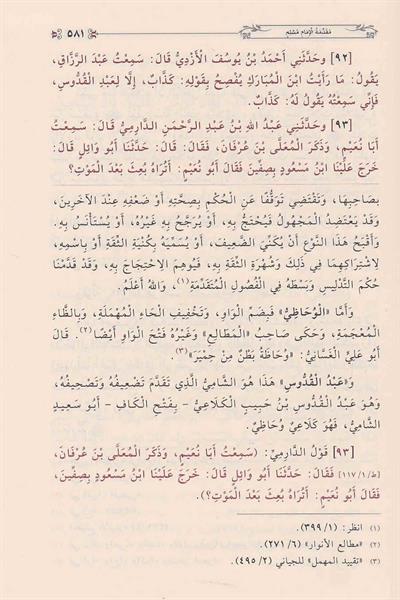 مُقَدِّمَةُ الإِمَامِ مُسْلِمٍ
٥٨١
[٩٢] وحَدَّثَنِي أَحْمَدُ بْنُ يُوسُفَ الْأَزْدِيُّ قَالَ: سَمِعْتُ عَبْدَ الرَّزَّاقِ،
يَقُولُ: مَا رَأَيْتُ ابْنَ الْمُبَارَكِ يُفْصِحُ بِقَوْلِهِ: كَذَّابٌ، إِلَّا لِعَبْدِ الْقُدُّوسِ،
فَإِنِّي سَمِعْتُهُ يَقُولُ لَهُ: كَذَّابٌ.
[٩٣] وحَدَّثَنِي عَبْدُ اللهِ بْنُ عَبْدِ الرَّحْمَنِ الدَّارِمِيُّ قَالَ: سَمِعْتُ
أَبَا نُعَيْمٍ، وَذَكَرَ الْمُعَلَّى بْنَ عُرْفَانَ، فَقَالَ: قَالَ: حَدَّثَنَا أَبُو وَائِلٍ قَالَ:
خَرَجَ عَلَيْنَا ابْنُ مَسْعُودٍ بِصِفِّينَ فَقَالَ أَبُو نُعَيْمٍ: أَتُرَاهُ بُعِثَ بَعْدَ الْمَوْتِ؟
بِصَاحِبِهَا، وَتَقْتَضِي تَوَقُّفًا عَنِ الْحُكْمِ بِصِحَّتِهِ أَوْ ضَعْفِهِ عِنْدَ الْآخَرِينَ،
وَقَدْ يَعْتَضِدُ الْمَجْهُولُ فَيُحْتَجُّ بِهِ، أَوْ يُرَجَّحُ بِهِ غَيْرُهُ، أَوْ يُسْتَأْنَسُ بِهِ.
وَأَقْبَحُ هَذَا النَّوْعِ أَنْ يُكَنِّيَ الضَّعِيفَ، أَوْ يُسَمِّيَهُ بِكُنْيَةِ الثِّقَةِ أَوْ بِاسْمِهِ،
لِاشْتِرَاكِهِمَا فِي ذَلِكَ وَشُهْرَةِ الثِّقَةِ بِهِ، فَيُوهِمَ الِاحْتِجَاجَ بِهِ، وَقَدْ قَدَّمْنَا
حُكْمَ التَّدْلِيسِ وَبَسْطَهُ فِي الْفُصُولِ الْمُتَقَدِّمَةِ(١)، وَاللهُ أَعْلَمُ.
وَأَمَّا «الْوُحَاظِيُّ» فَبِضَمِّ الْوَاوِ، وَتَخْفِيفِ الْحَاءِ الْمُهْمَلَةِ، وَبِالظَّاءِ
الْمُعْجَمَةِ، وَحَكَى صَاحِبُ «الْمَطَالِعِ» وَغَيْرُهُ فَتْحَ الْوَاوِ أَيْضًا(٢). قَالَ
أَبُو عَلِيٍّ الْغَسَّانِيُّ: «وُحَاظَةُ بَطْنٌ مِنْ حِمْيَرَ»(٣).
وَ«عَبْدُ الْقُدُّوسِ» هَذَا هُوَ الشَّامِيُّ الَّذِي تَقَدَّمَ تَضْعِيفُهُ وَتَصْحِيفُهُ،
وَهُوَ عَبْدُ الْقُدُّوسِ بْنُ حَبِيبٍ الْكَلَاعِيُّ - بِفَتْحِ الْكَافِ - أَبُو سَعِيدٍ
الشَّامِيُّ، فَهُوَ كَلَاعِيٌّ وُحَاظِيٌّ.
[٩٣] قَوْلُ الدَّارِمِيِّ: (سَمِعْتُ أَبَا نُعَيْمٍ، وَذَكَرَ الْمُعَلَّى بْنَ عُرْفَانَ،
[ط/١/١١٧] فَقَالَ: حَدَّثَنَا أَبُو وَائِلٍ قَالَ: خَرَجَ عَلَيْنَا ابْنُ مَسْعُودٍ بِصِفِّينَ،
فَقَالَ أَبُو نُعَيْمٍ: أَتُرَاهُ بُعِثَ بَعْدَ الْمَوْتِ؟).
(١) انظر: (١/ ٣٩٩).
(٢) «مطالع الأنوار» (٦/ ٢٧١).
(٣) «تقييد المهمل» للجياني (٢/ ٤٩٥).